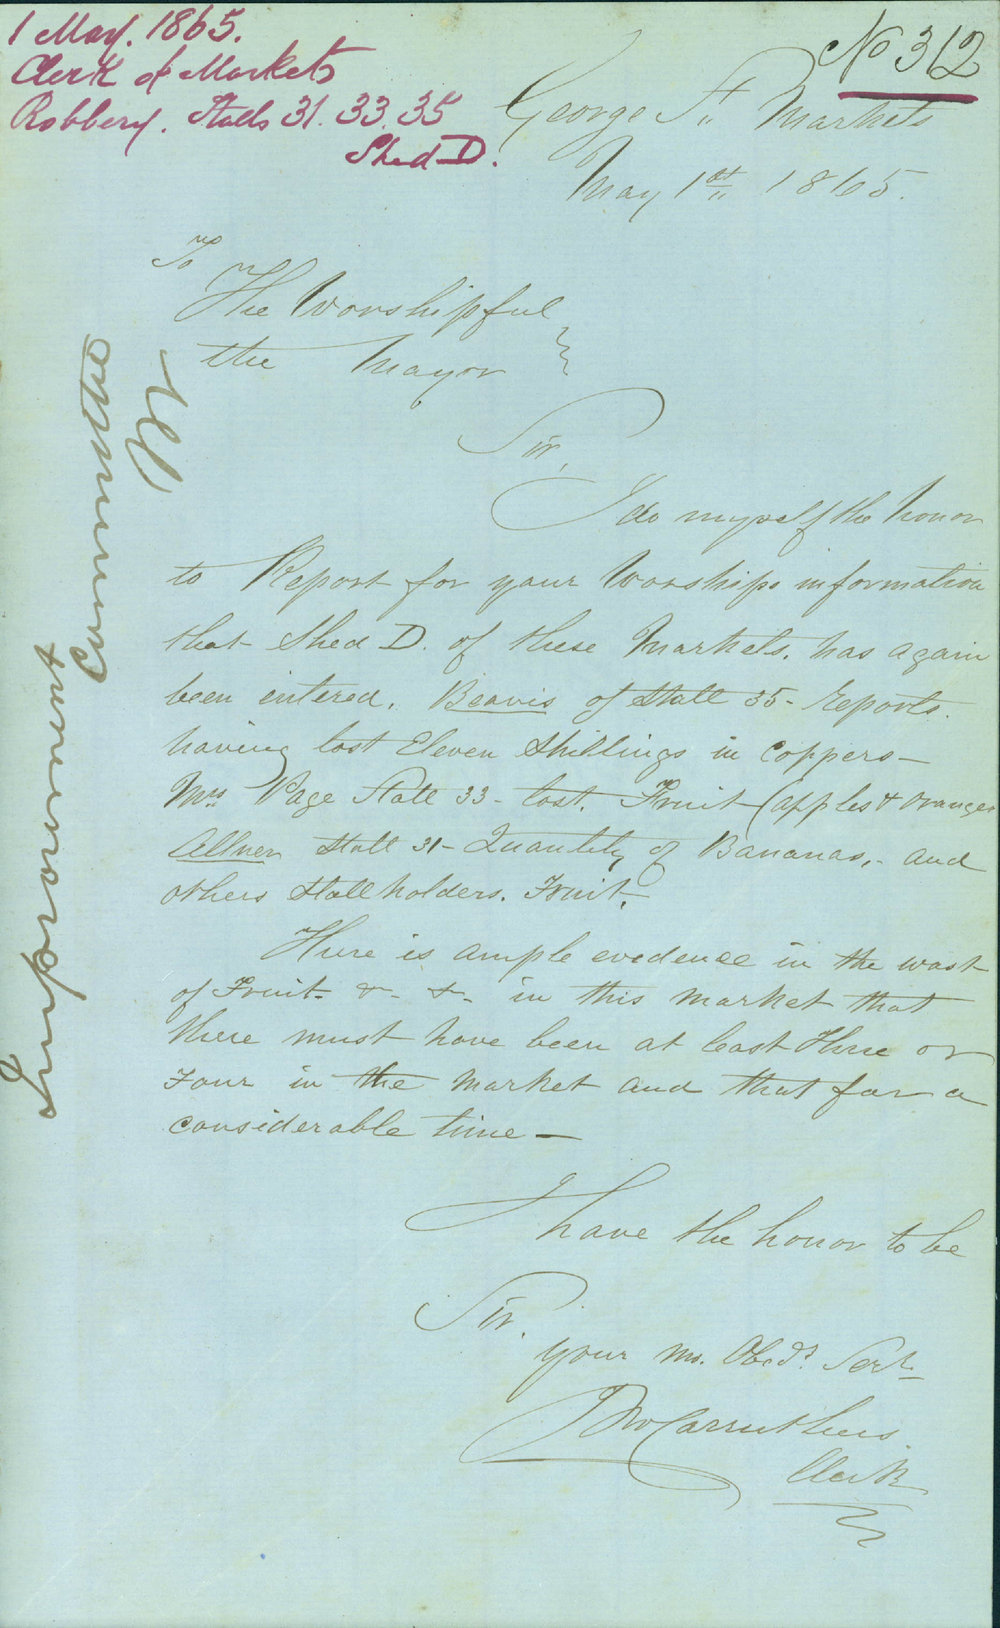 1 May. 1865.
Clerk of Markets
Robbery. Stalls 31. 33. 35
Shed D.
No 312
George St. Markets
May 1st 1865.
To
The Worshipful
the Mayor
Sir,
I do myself the honor
to Report for your Worships information
that Shed D. of these Markets. has again
been entered. Beavis of Stall 35 - reports.
having lost Eleven Shillings in Coppers -
Mrs Page Stall 33 - lost. Fruit (apples & oranges
Allner Stall 31 - Quantity of Bananas, - and
others Stallholders. Fruit.
There is ample evidence in the wast
of Fruit - &. &. in this market that
there must have been at least Three or
Four in the market and that for a
considerable time -
I have the honor to be
Sir.
your mo. Obedt. Servt
Carruthers
Clerk
Improvement
Committee